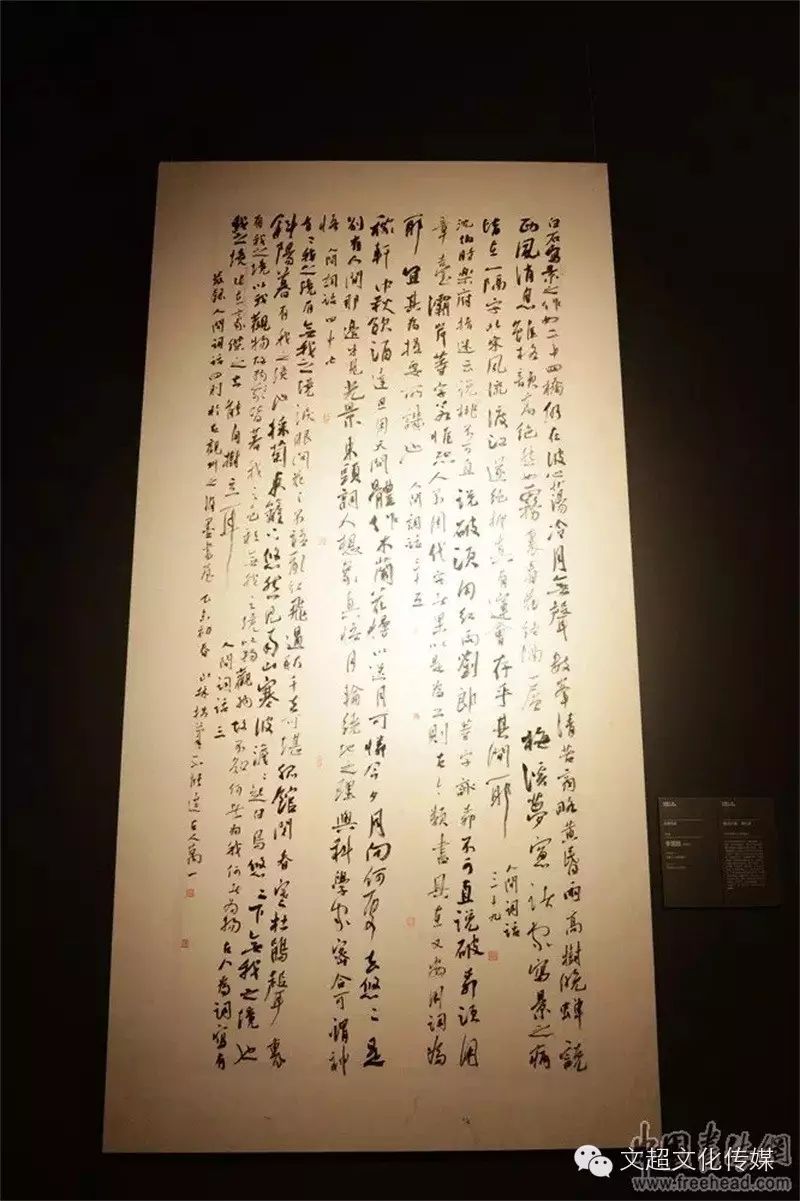 白石寫景之作如二十四橋仍在波心蕩冷月無聲數峯清苦商略黃昏雨高樹晚蟬說
西風消息雖格韻高絕然如霧裏看花終隔一層梅溪夢窗諸家寫景之病
皆在一隔字北宋風流渡江遂絕抑真有運會存乎其間耶
人間詞話
三十九
沈伯時樂府指迷云說桃不可直說破須用紅雨劉郎等字詠柳不可直說破柳須用
章臺灞岸等字若惟恐人不用代字者果以是為工則古今類書具在又安用詞為
耶宜其為提要所譏也 人間詞話三十五
稼軒中秋飲酒達旦用天問體作木蘭花慢以送月可憐今夕月向何處去悠悠是
別有人間那邊才見光景東頭詞人想象直悟月輪繞地之理與科學家密合可謂神
悟 人間詞話四十七
有我之境有無我之境淚眼問花花不語亂紅飛過鞦韆去可堪孤館閉春寒杜鵑聲裏
斜陽暮有我之境也採菊東籬下悠然見南山寒波澹澹起白鳥悠悠下無我之境也
有我之境以我觀物故物皆著我之色彩無我之境以物觀物故不知何者為我何者為物古人為詞寫有
我之境 豪傑之士能自樹立耳 人間詞話三
節錄人間詞話四則於 乙未初春 山林拙筆不能達古人萬一
文超文化传媒
中国书法網
www.freehead.com